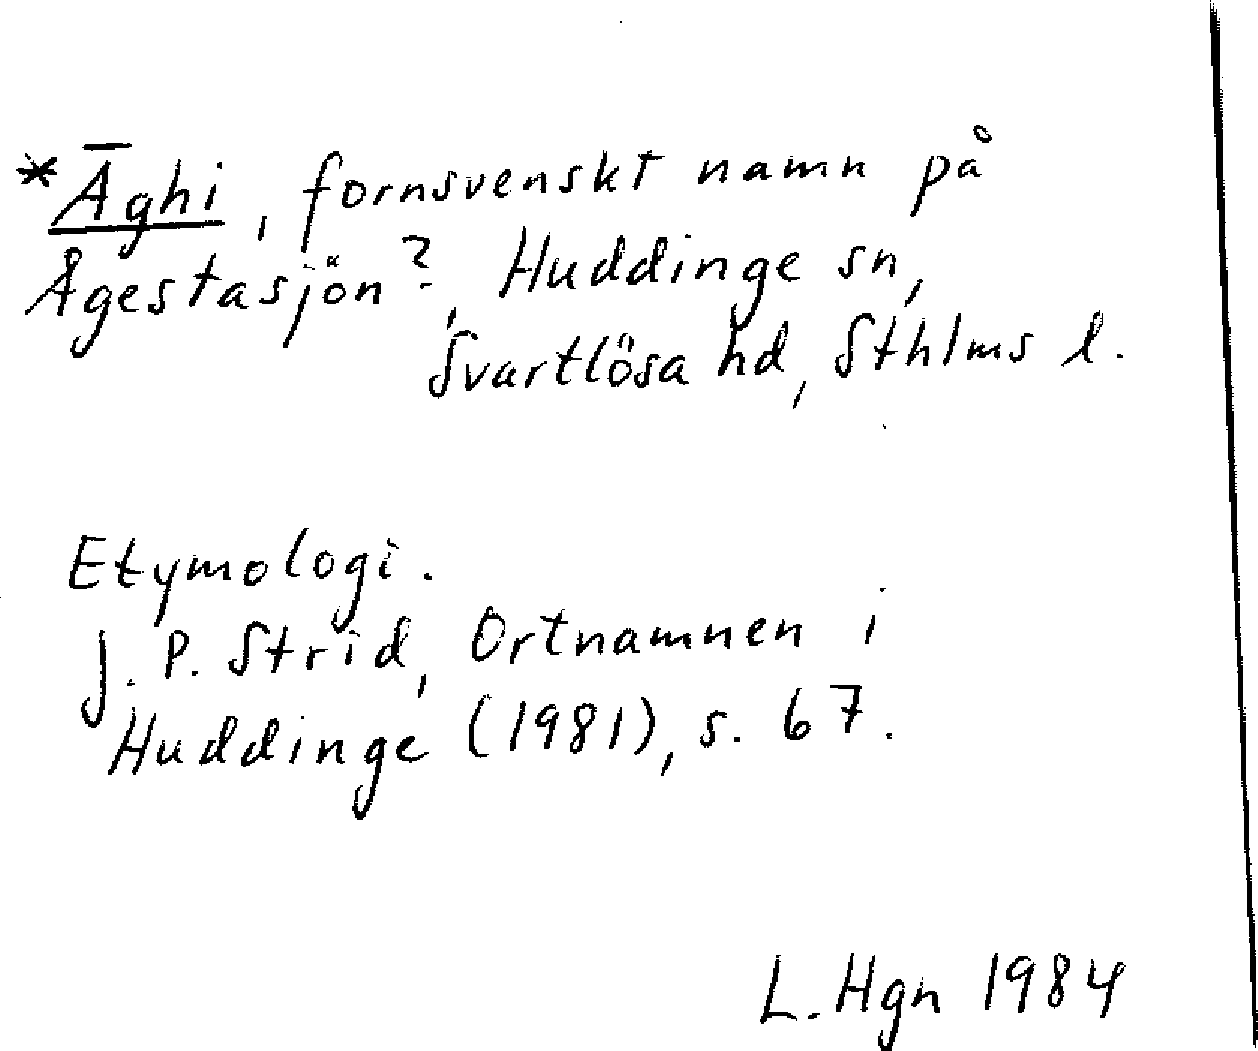 *Āghi, fornsvenskt namn på
Ågestasjön?, Huddinge sn,
Svartlösa hd, Sthlms l.
Etymologi.
J. P. Strid, Ortnamnen i
Huddinge (1981), s. 67.
L. Hgn 1984